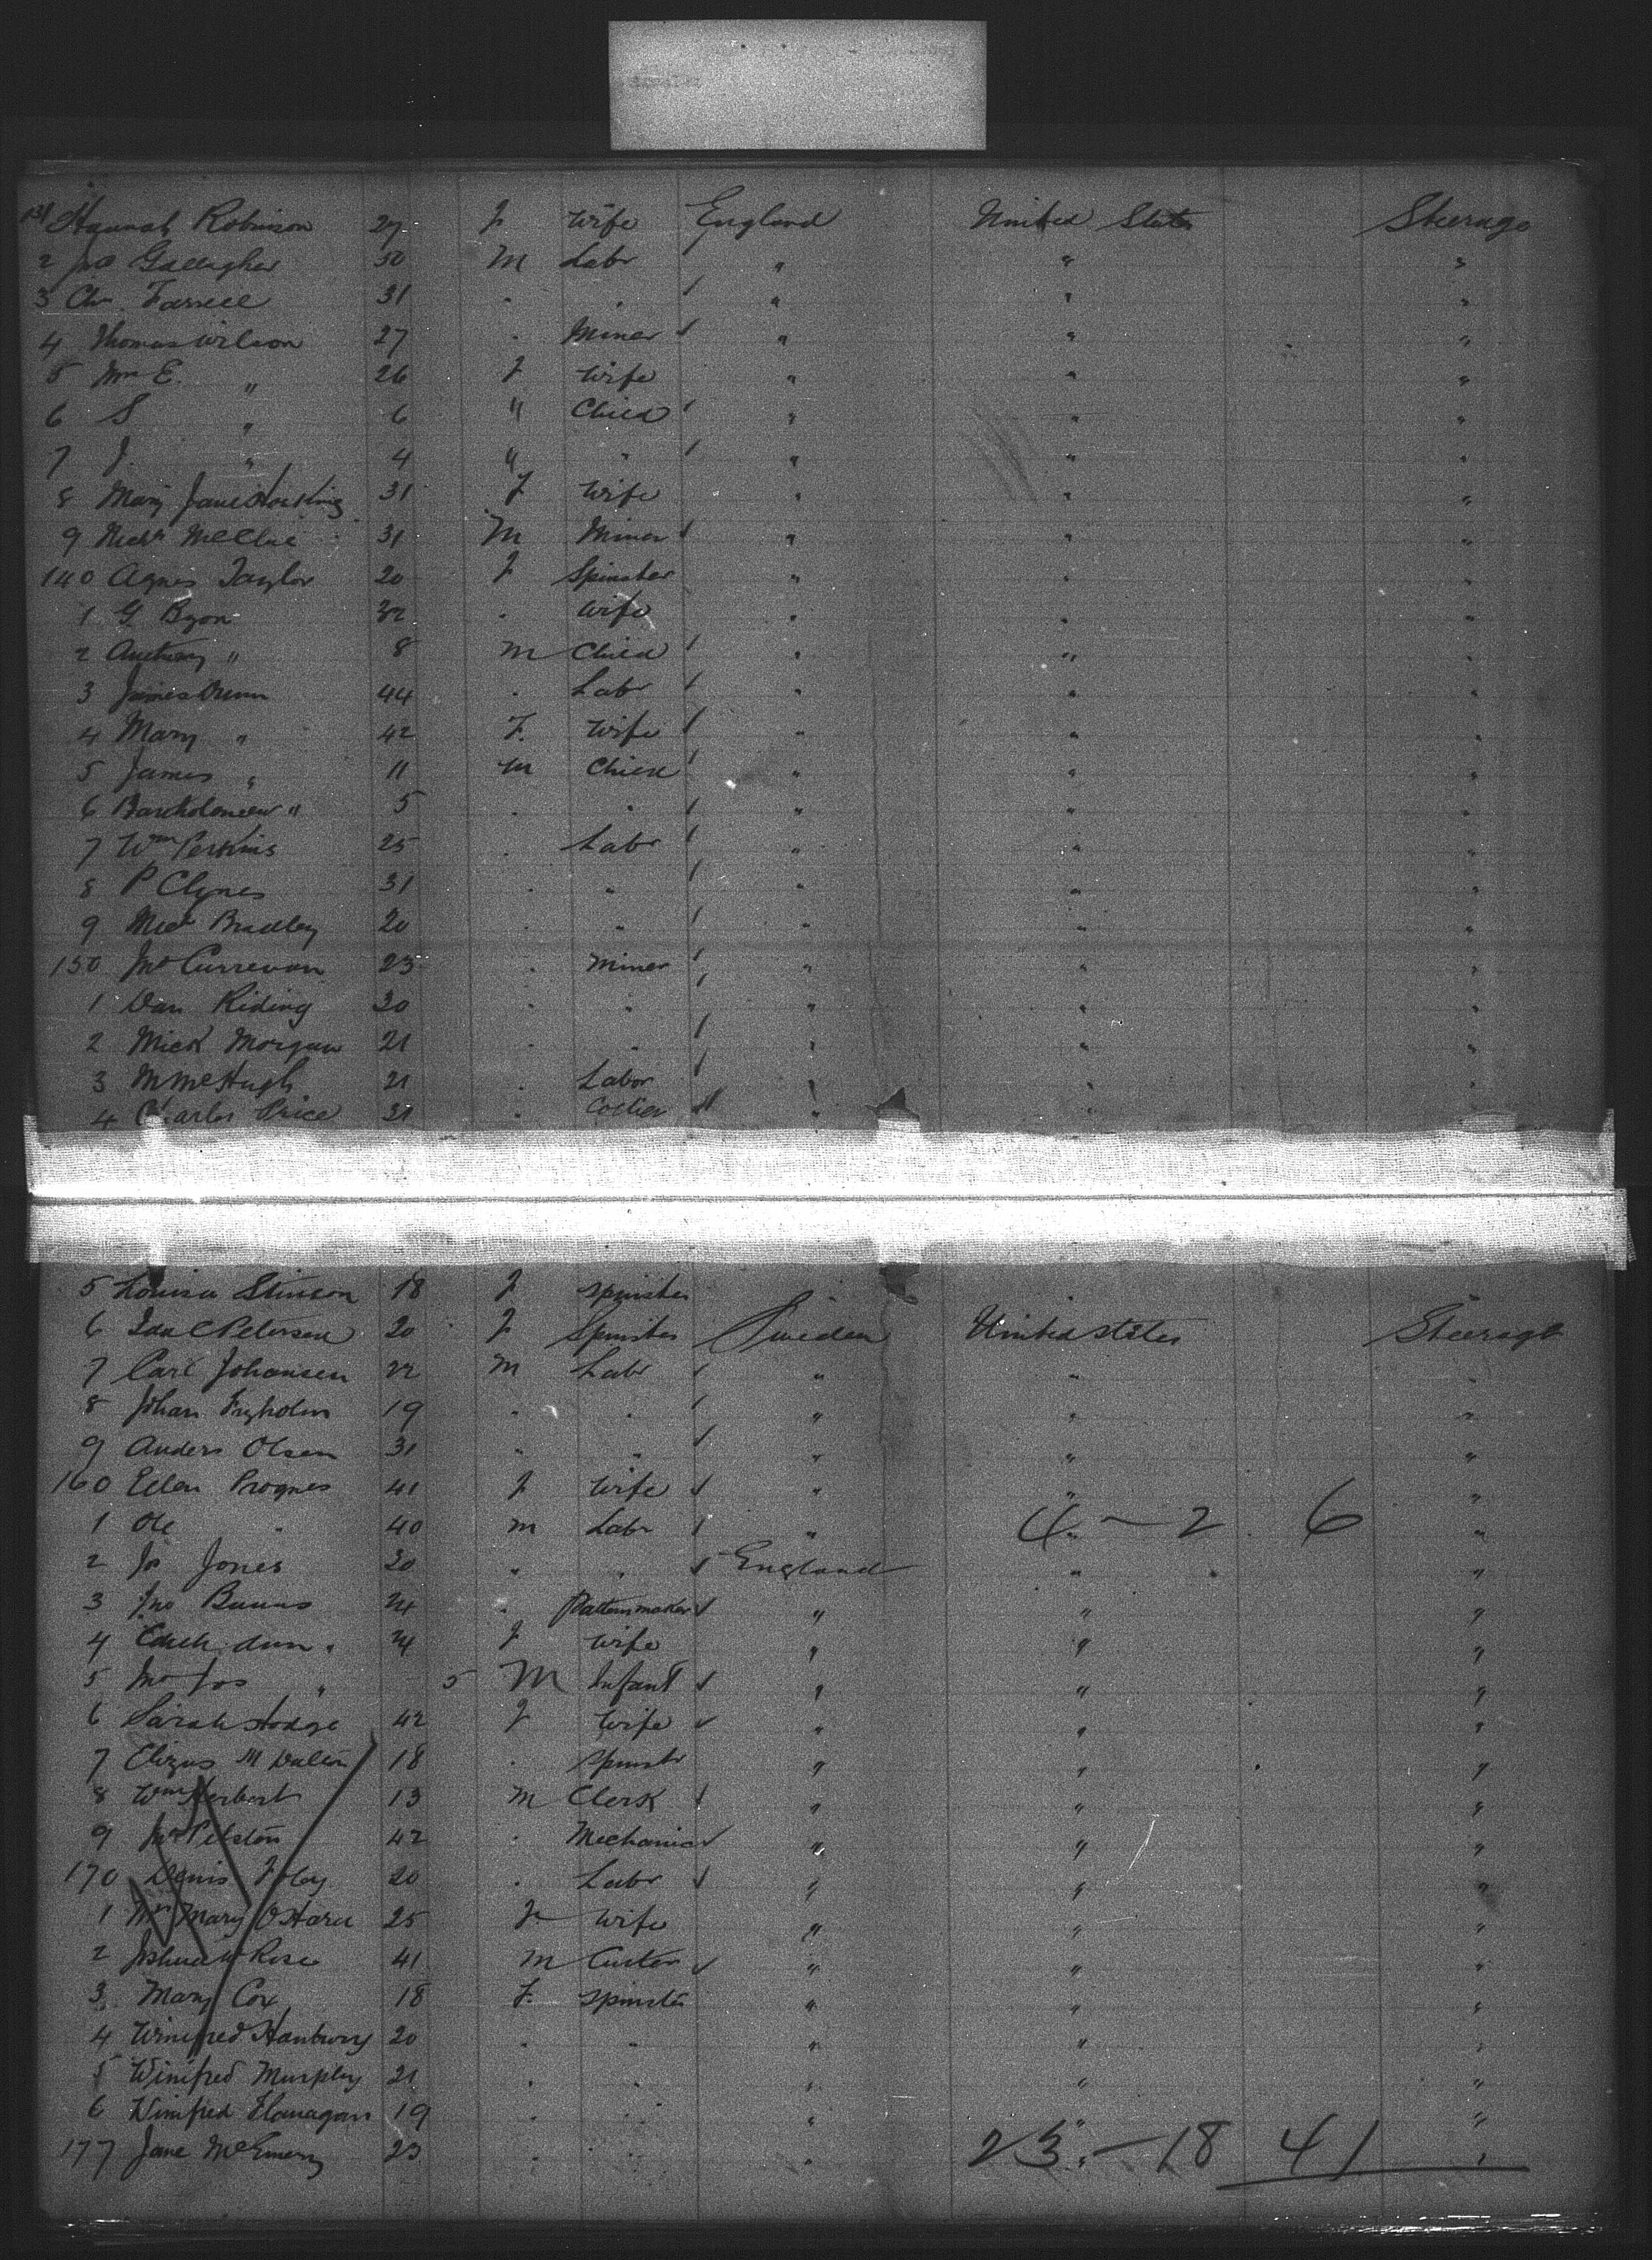 131 Hannah Robinson 27 F Wife England United States Steerage
2 Jno Gallagher 30 M Labr " " "
3 Chr. Farrell 31 " " " " "
4 Thomas Wilson 27 " Miner " " "
5 Mrs E. " 26 F Wife " " "
6 S " 6 " Child " " "
7 J. " 4 " " " " "
8 Mary Jane Hosking 31 F Wife " " "
9 31 M Miner " " "
140 Agnes Taylor 20 F Spinster " " "
1 G. Byon 32 " Wife " " "
2 Anthony " 8 M Child " " "
3 James Dunn 44 " Labr " " "
4 Mary " 42 F. Wife " " "
5 James " 11 M Child " " "
6 Bartholomew " 5 " " " " "
7 Wm Perkins 25 " Labr " " "
8 P Clynes 31 " " " " "
9 Micl Bradley 20 " " " " "
150 Jno Currevan 23 " Miner " " "
1 Dan Riding 30 " " " " "
2 Mick Morgan 21 " " " " "
3 M McHugh 21 " Labor " " "
4 Charles Price 31 " Collier " " "
5 Louisa Stinson 18 F Spinster
6 Ida C Peterson 20 F Spinster Sweden United States Steerage
7 Carl Johansen 22 M Labr " " "
8 Johan Fryholm 19 " " " " "
9 Anders Olsen 31 " " " " "
160 Ellen Prognes 41 F Wife " " "
1 Ole " 40 M Labr " 4 - 2 6 "
2 Jno Jones 30 " " England " "
3 Jno Bunns 24 " Patternmaker " " "
4 Edith Ann " 24 F Wife " " "
5 Jno Jos " 5 M Infant " " "
6 Sarah Hodge 42 F Wife " " "
7 M Dalton 18 " Spinstr " " "
8 Wm Herbert 13 M Clerk " " "
9 Jno Pelston 42 " Mechanic " " "
170 Denis Foley 20 " Labr " " "
1 Mrs Mary O'Hara 25 F Wife " " "
2 Joshua W Rose 41 M Cutter " " "
3 Mary Cox 18 F. Spinster " " "
4 Winifred Hanbury 20 " " " " "
5 Winifred Murphy 21 " " " " "
6 Winifred Flanagan 19 " " " " "
177 Jane McEmery 23 " " " 23 - 18 41 "